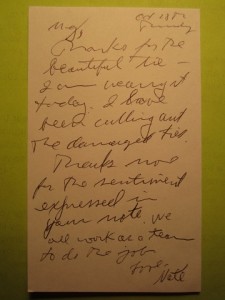 Thanks for the
beautiful tie -
I am wearing it
today. I have
been culling out
the damaged ties.
Thanks now
for the sentiment
expressed in
your note. We
all work as a team
to do the job
Love,
Nate